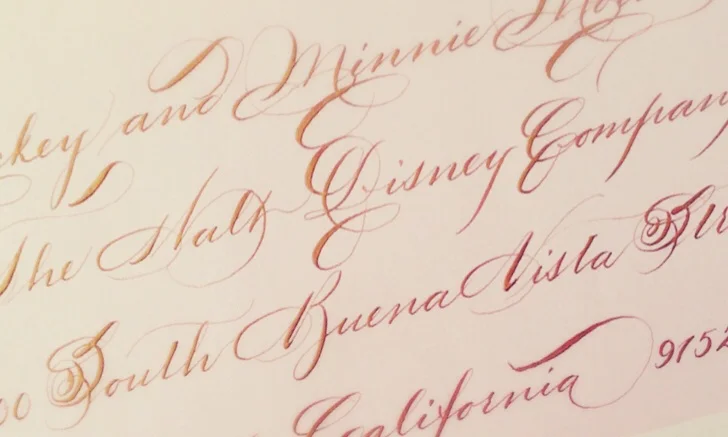 ckey and Minnie Mou
The Walt Disney Company
00 South Buena Vista Blv
California 9152